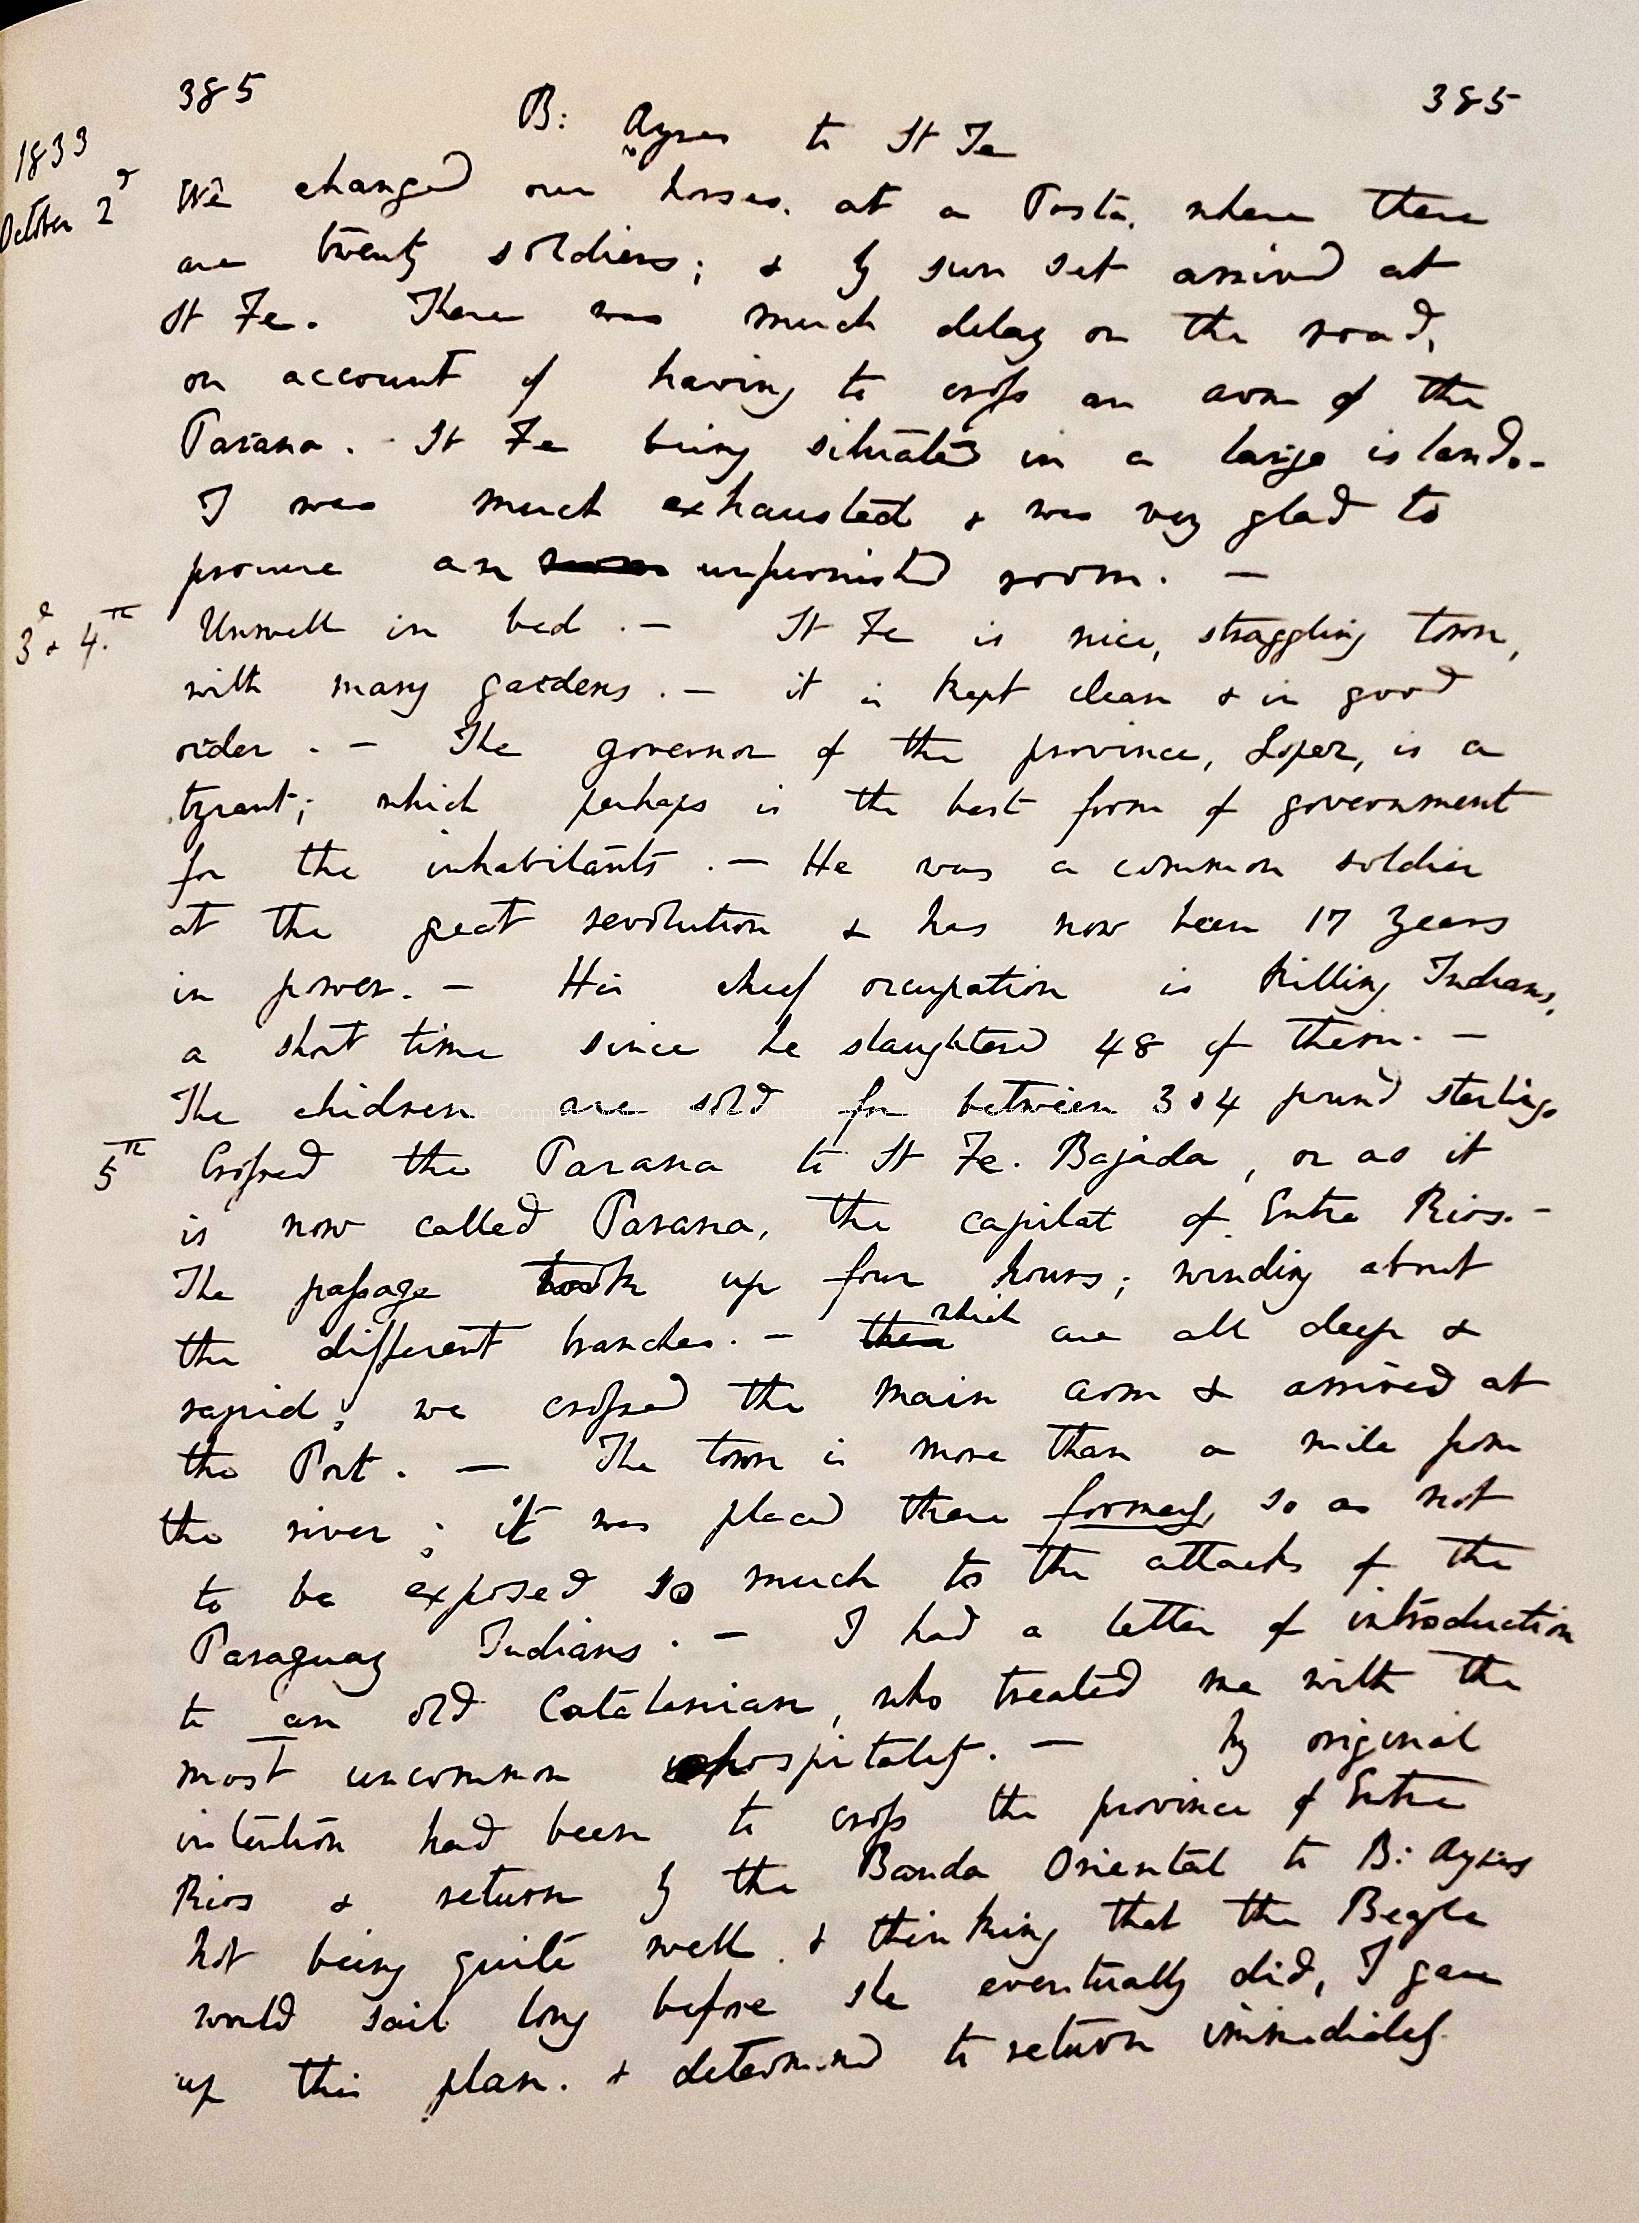 385 385
B: Ayres to St Fe
1833
October 2d We changed our horses. at a Posta, where there
are twenty soldiers; & by sun set arrived at
St Fe. There was much delay on the road,
on account of having to cross an arm of the
Parana. - St Fe being situated in a large island. -
I was much exhausted & was very glad to
procure an room unfurnished room. —
3d & 4th Unwell in bed. — St Fe is nice, straggling town,
with many gardens. — it is kept clean & in good
order. — The governor of the province, Lopez, is a
tyrant; which perhaps is the best form of government
for the inhabitants. — He was a common soldier
at the great revolution & has now been 17 years
in power. — His cheif occupation is killing Indians,
a short time since he slaughtered 48 of them. —
The chidren are sold for between 3 & 4 pound sterling.
5th Crossed the Parana to St Fe. Bajada, or as it
is now called Parana, the capital of Entre Rios. -
The passage took up four hours; winding about
the different branches. — then which are all deep &
rapid; we crossed the main arm & arrived at
the Port. — The town is more than a mile from
the river; it was placed there formerly, so as not
to be exposed so much to the attacks of the
Paraguay Indians. — I had a letter of introduction
to an old Catalonian, who treated me with the
most uncommon hospitality. — My original
intention had been to cross the province of Entre
Rios & return by the Banda Oriental to B: Ayres
not being quite well & thinking that the Beagle
would sail long before she eventually did, I gave
up this plan. & determined to return immediately